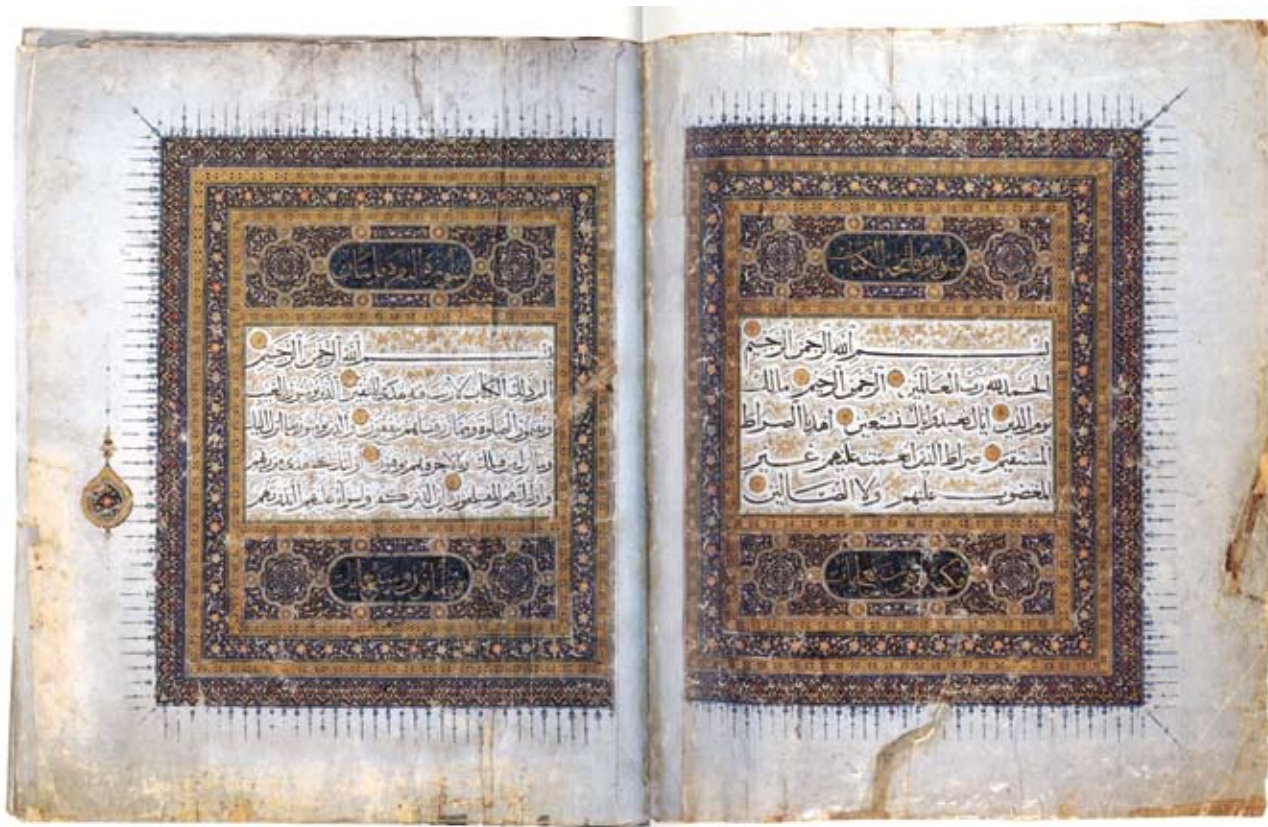 سورة فاتحة الكتاب
بسم الله الرحمن الرحيم
الحمد لله رب العالمين الرحمن الرحيم مالك
يوم الدين اياك نعبد واياك نستعين اهدنا الصراط
المستقيم صراط الذين انعمت عليهم غير
المغضوب عليهم ولا الضالين
بسم الله الرحمن الرحيم
الم ذلك الكتاب لا ريب فيه هدى للمتقين الذين يؤمنون بالغيب
ويقيمون الصلوة ومما رزقناهم ينفقون والذين يؤمنون بما انزل اليك
وما انزل من قبلك وبالاخرة هم يوقنون اولئك على هدى من ربهم
واولئك هم المفلحون ان الذين كفروا سواء عليهم ءانذرتهم